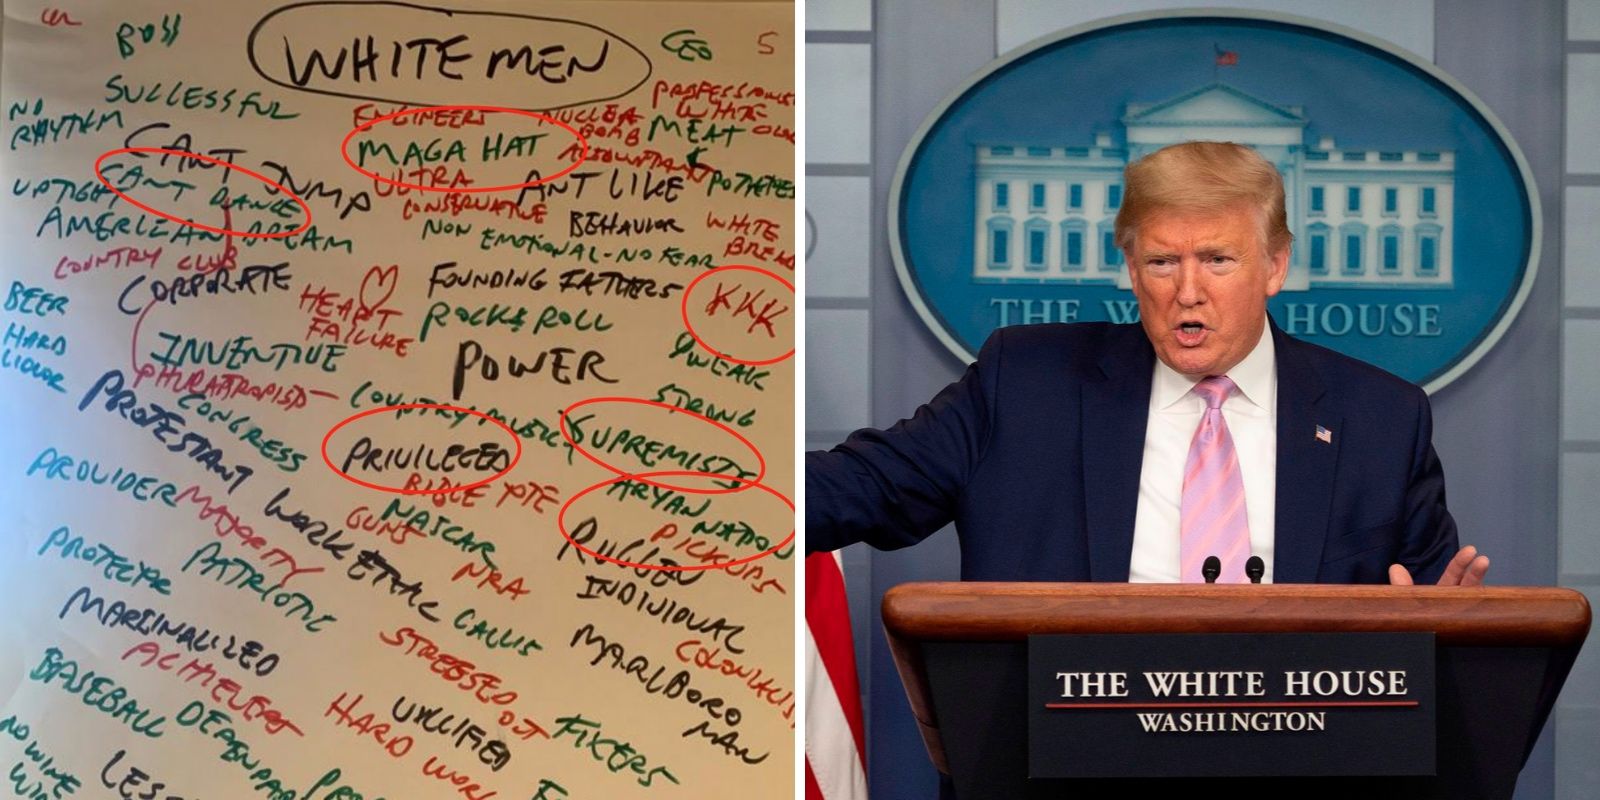 BOSS
WHITE MEN
CEO
5
SUCCESSFUL
PROFESSIONAL
WHITE
NO
RHYTHM
ENGINEERS
NUCLEAR
BOMB
MEAT
CANT JUMP
MAGA HAT
ACCOUNTANT
UPTIGHT
CANT DANCE
ULTRA
CONSERVATIVE
ANT LIKE
BEHAVIOR
AMERICAN DREAM
NON EMOTIONAL-NO FEAR
WHITE
BREAD
COUNTRY CLUB
CORPORATE
FOUNDING FATHERS
KKK
BEER
HARD
LIQUOR
HEART
FAILURE
ROCK & ROLL
INVENTIVE
POWER
WEAK
STRONG
COUNTRY MUSIC
CONGRESS
PROTESTANT WORK ETHIC
PRIVILEGED
SUPREMISTS
PROVIDER
BIBLE TOTE
ARYAN NATION
MAJORITY
GUNS
NASCAR
PICKUPS
RUGGED
INDIVIDUAL
PATRIOTIC
NRA
MARGINALIZED
CALLIS
STRESSED
OUT
MARLBORO
MAN
COLONIALIST
ACHIEVERS
BASEBALL
VILLIFIED
FIXERS
HARD
NO WINE
THE WHITE HOUSE
THE WHITE HOUSE
WASHINGTON